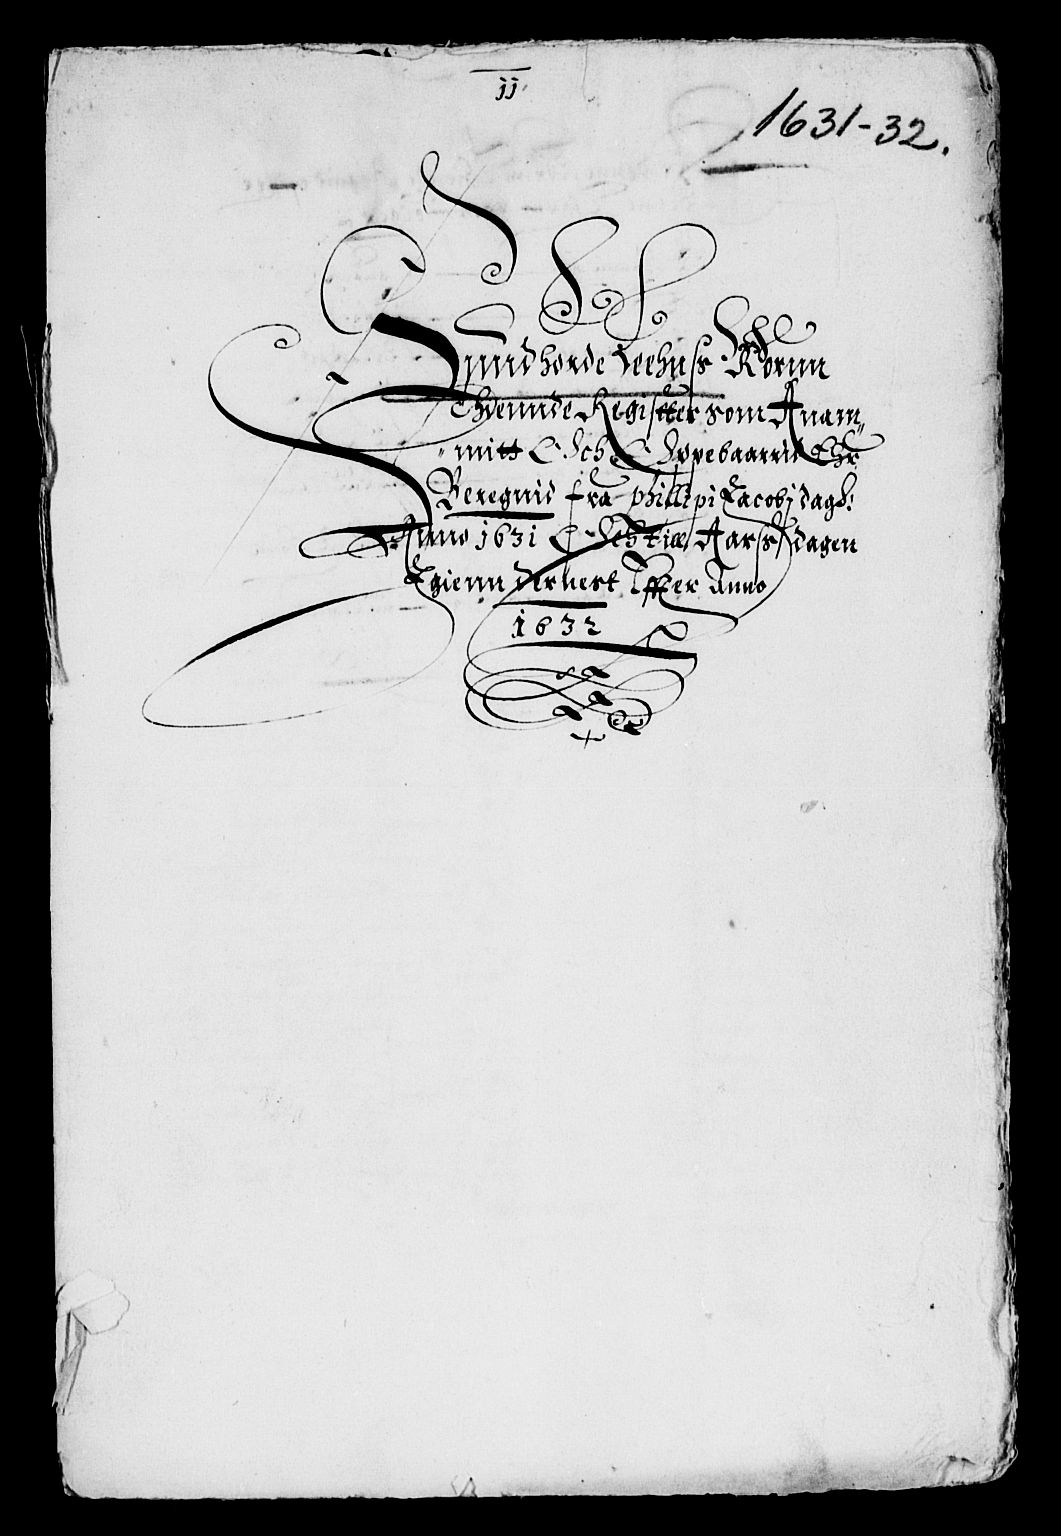 jj
1631-32.
Sundhorde Leehns Kornn
Thiennde Register som Anam„
„mitt Och Oppebaarrid Ehr
Beregnid fra phillipi Jacobj dagh:
Anno 1631 Och till Aars dagen
Igienn dernest Effter Anno
1632